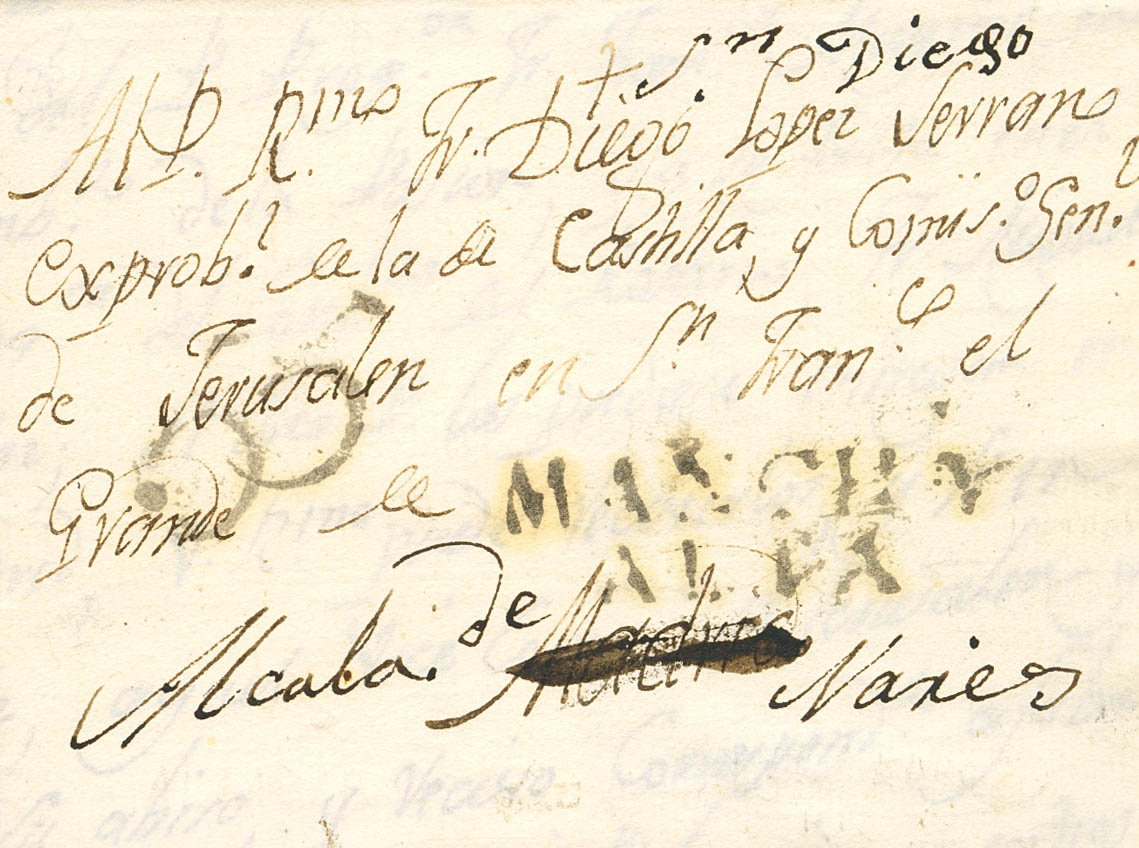 Sn Diego
Al P. Rmo Fr. Diego Lopez Serrano
Exprobl. de la de Castilla, y Comis.o Gen.l
de Jerusalen en Sn. Fran.co el
Grande de MANCHA
ALTA
Alcala. de Madrid Nares